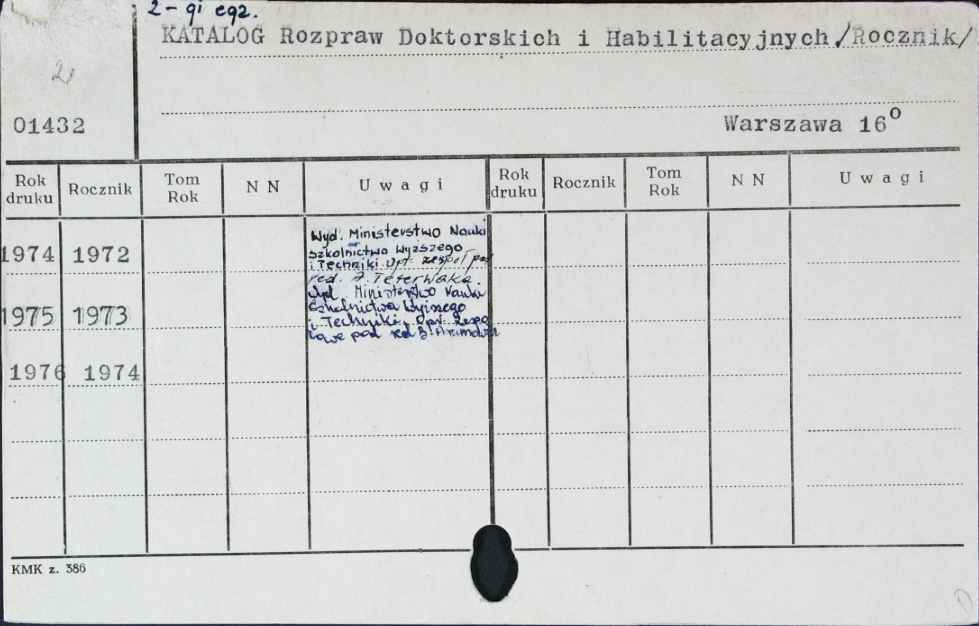 2-gi egz.
KATALOG Rozpraw Doktorskich i Habilitacyjnych /Rocznik/
2
01432
Warszawa 16°
Rok druku Rocznik Tom Rok N N Uwagi Rok druku Rocznik Tom Rok N N Uwagi
1974 1972
Wyd. Ministerstwo Nauki
szkolnictwo wyższego
i Techniki Opr. zespoł pod
red. A.
1975 1973
Wyd. Ministerstwo Nauki
Szkolnictwa Wyższego
i Techniki. Opr. zespo
łowe pod red
1976 1974
KMK z. 386
D